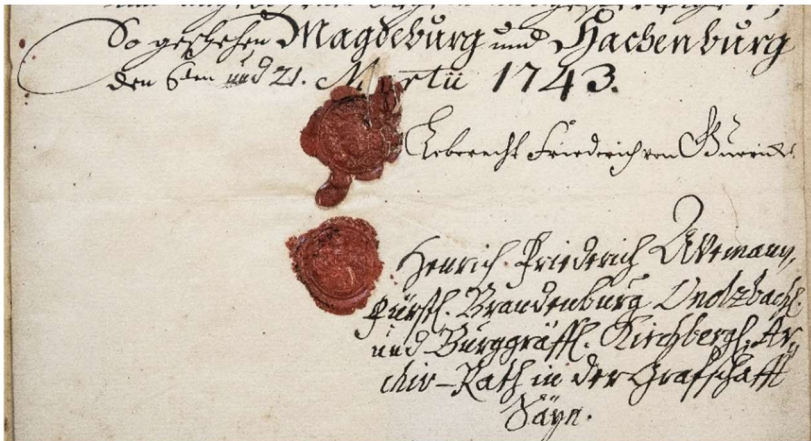 So geschehen Magdeburg und Hachenburg
den 6ten und 21. Martii 1743.
Leberecht Friederich von
Henrich Friederich Avemann,
Fürstl. Brandenburg Onolzbachl
und Burggräffl. Kirchbergl. Ar
chiv-Rath in der Grafschafft
Sayn.